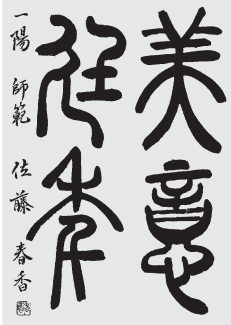 美意
延年
一陽 師範 佐藤春香